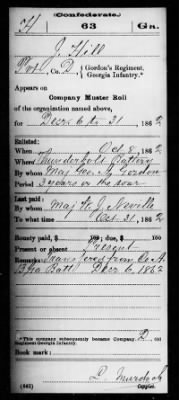 (Confederate.)
H 63 Ga.
J Hill
Pvt., Co. D, Gordon's Regiment, Georgia Infantry.*
Appears on
Company Muster Roll
of the organization named above,
for Decr 6 to 31, 1862
Enlisted:
When Oct 8, 1862
Where Thunderbolt Battery
By whom Maj Geo. A. Gordon
Period 3 years or the war
Last paid:
By whom Maj H. J. Neville
To what time Oct 31, 1862
Bounty paid, $ 100; due, $ 100
Present or absent Present
Remarks: Transfered from Co A
Ga Batt Decr 6, 1862
*This company subsequently became Company D, 63d Regiment Georgia Infantry.
Book mark:
(642) Copyist.